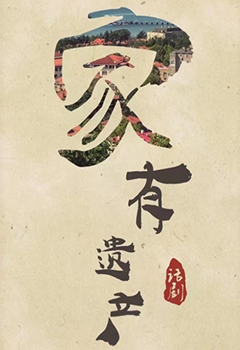 家有遗产
话剧